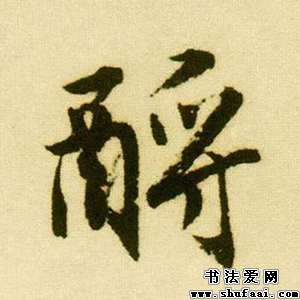 酹
书法爱网
www.shufaai.com